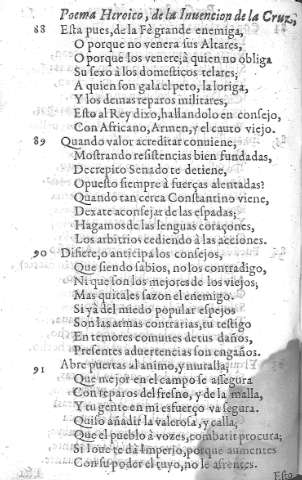 Poema Heroico, de la Inuencion de la Cruz,
88 Esta pues, de la Fè grande enemiga,
O porque no venera sus Altares,
O porque los venere; à quien no obliga
Su sexo à los domesticos telares;
A quien son gala el peto, la loriga,
Y los demas reparos militares,
Esto al Rey dixo, hallandolo en consejo,
Con Africano, Armen, y el cauto viejo.
89 Quando valor acreditar conuiene,
Mostrando resistencias bien fundadas,
Decrepito Senado te detiene,
Opuesto siempre à fuerças alentadas?
Quando tan cerca Constantino viene,
Dexate aconsejar de las espadas;
Hagamos de las lenguas coraçones,
Los arbitrios cediendo à las acciones.
90 Difiere, o anticipa los consejos,
Que siendo sabios, no los contradigo,
Ni que son los mejores de los viejos,
Mas quitales sazon el enemigo.
Si yà del miedo popular espejos
Son las armas contrarias, tu testigo
En temores comunes de tus daños,
Presentes aduertencias son engaños.
91 Abre puertas al animo, y muralla;
Que mejor en el campo se assegura
Con reparos del fresno, y de la malla,
Y tu gente en mi esfuerço va segura.
Quiso añadir la valerosa, y calla,
Que el pueblo à vozes, combatir procura;
Si Ioue te dà Imperio, porque aumentes
Con su poder el tuyo, no le afrentes.
Esto